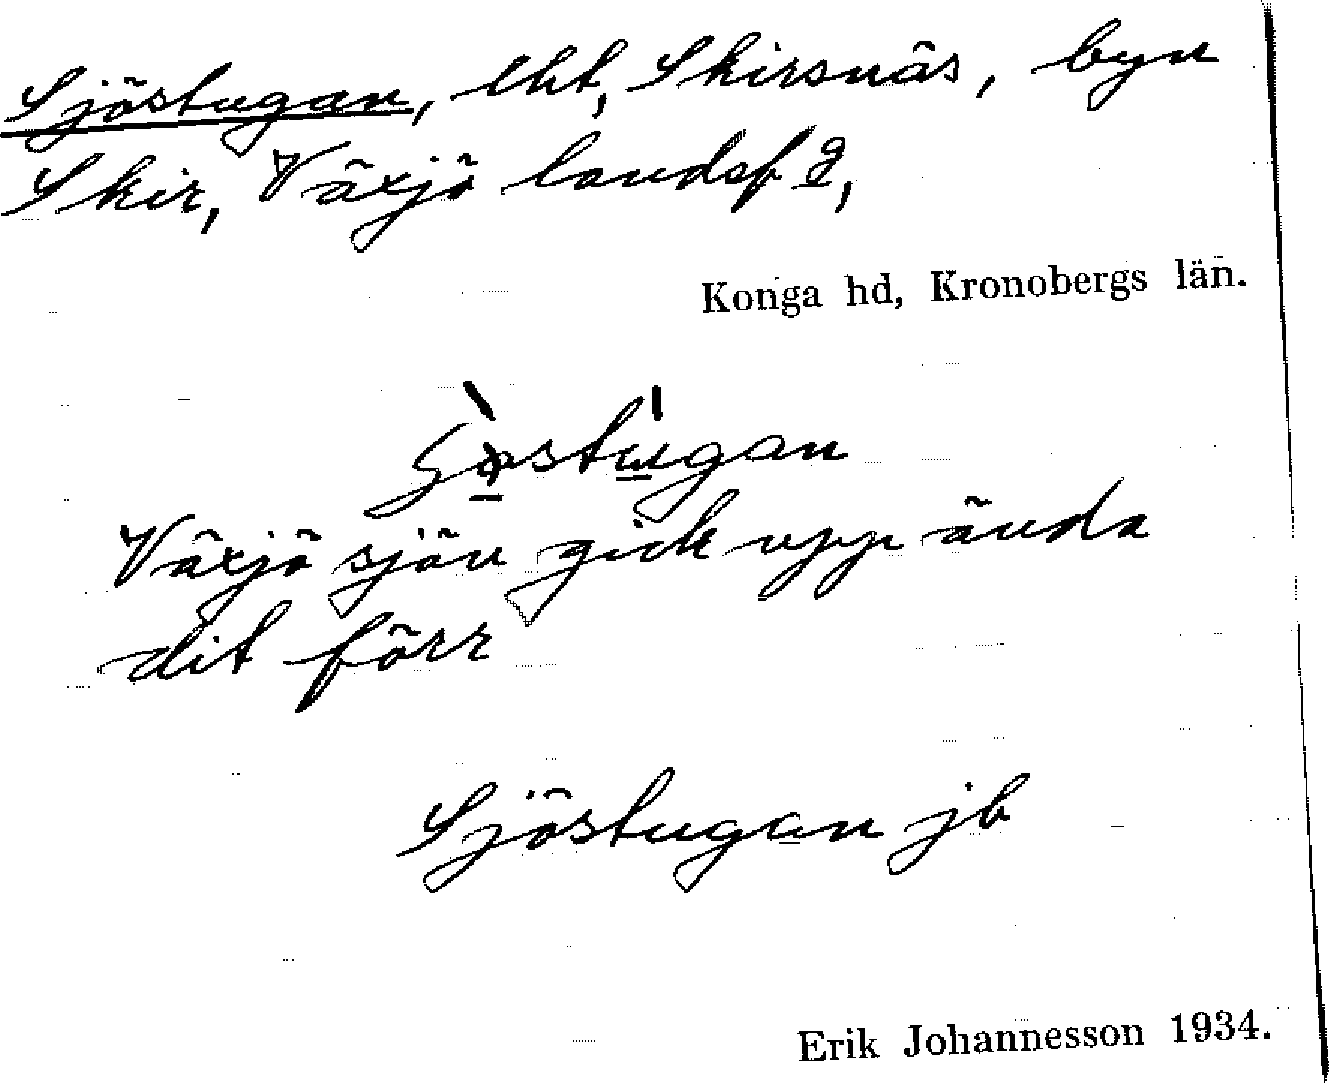 Sjöstugan, lht, Skirsnäs, byn
Skir, Växjö landsf g,
Konga hd, Kronobergs län.
Växjö sjön gick upp ända
dit förr
Sjöstugan jb
Erik Johannesson 1934.